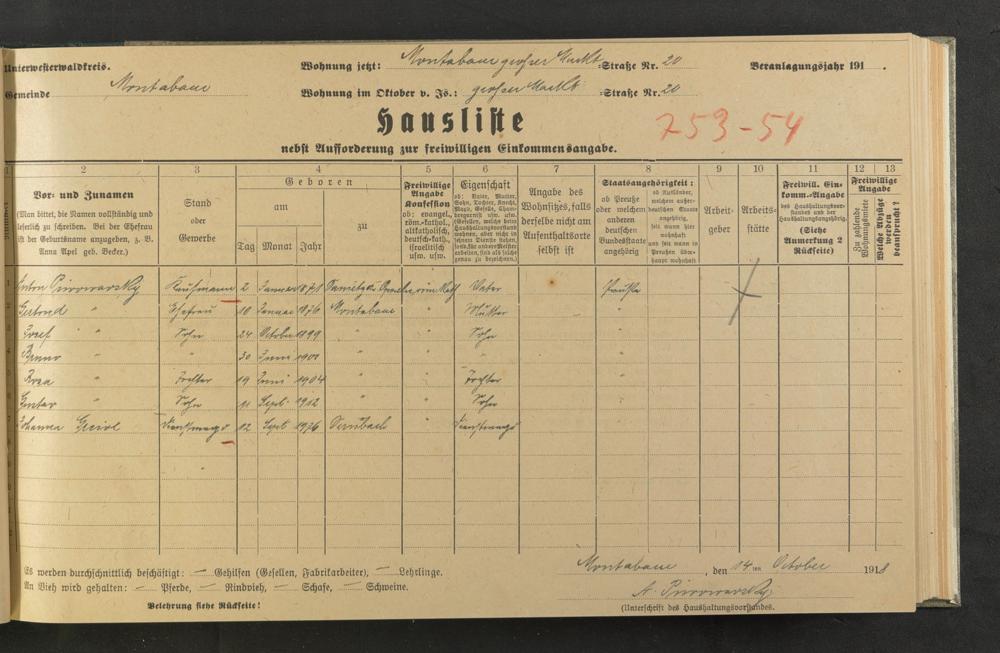 Unterwesterwaldkreis.
Wohnung jetzt: Montabaur großer Markt =Straße Nr. 20
Veranlagungsjahr 191 .
Gemeinde Montabaur
Wohnung im Oktober v. Js.: großer Markt =Straße Nr. 20
Hausliste
753-54
nebst Aufforderung zur freiwilligen Einkommensangabe.
1 2 3 4 5 6 7 8 9 10 11 12 13
Vor- und Zunamen
(Man bittet, die Namen vollständig und
leserlich zu schreiben. Bei der Ehefrau
ist der Geburtsname anzugeben, z. B.
Anna Apel geb. Becker.)
Stand
oder
Gewerbe
Geboren
am
zu
Tag Monat Jahr
Freiwillige
Angabe
Konfession
ob: evangel.,
röm.-kathol.,
altkatholisch,
deutsch-kath.,
israelitisch
usw. usw.
Eigenschaft
Angabe des
Wohnsitzes, falls
derselbe nicht am
Aufenthaltsorte
selbst ist
Staatsangehörigkeit:
ob Preuße
oder welchem
anderen
deutschen
Bundesstaate
angehörig
ob Ausländer,
welchem außer-
deutschen Staate
angehörig,
seit wann hier
wohnhaft
und seit wann in
Preußen über-
haupt wohnhaft
Arbeit-
geber
Arbeits-
stätte
Freiwill. Ein-
komm.-Angabe
des Haushaltungsvor-
standes und der
Haushaltungsangehörig.
(Siehe
Anmerkung 2
Rückseite)
Freiwillige
Angabe
Zu zahlende
Wohnungsmiete
Welche Abzüge
werden
beansprucht?
Kaufmann 2 Januar 1871 röm Kath Vater Preuße
Gertrud " Ehefrau 10 Januar 1876 Montabaur " Mutter "
Josef " Sohn 24 October 1899 " " Sohn "
" " 30 Juni " " " "
" Tochter 19 Juni 1904 " " Tochter "
" Sohn 11 Sept. 1912 " " Sohn "
Johanna Dienstmagd 12 Sept " Dienstmagd "
Es werden durchschnittlich beschäftigt: — Gehilfen (Gesellen, Fabrikarbeiter), — Lehrlinge.
An Vieh wird gehalten: — Pferde, — Rindvieh, — Schafe, — Schweine.
Belehrung siehe Rückseite!
Montabaur , den 14 ten October 1918
(Unterschrift des Haushaltungsvorstandes.